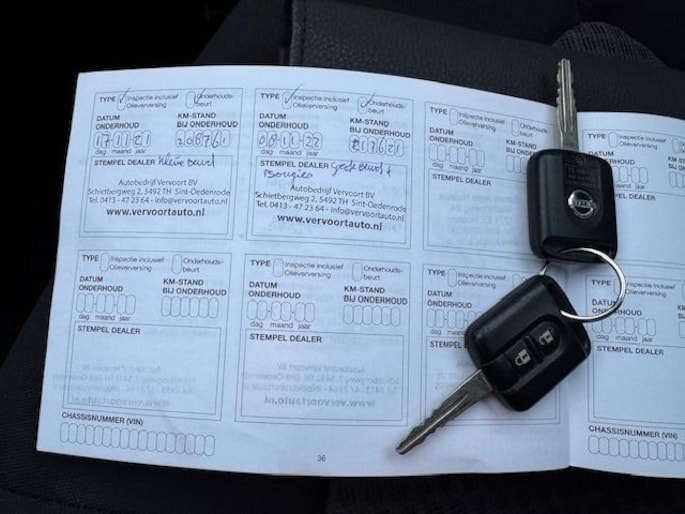 TYPE Inspectie inclusief Olieverversing Onderhouds-beurt
DATUM ONDERHOUD KM-STAND BIJ ONDERHOUD
17 11 21 208761
dag maand jaar
STEMPEL DEALER Kleine beurt
Autobedrijf Vervoort BV
Schietbergweg 2, 5492 TH Sint-Oedenrode
Tel. 0413 - 47 23 64 - info@vervoortauto.nl
www.vervoortauto.nl
TYPE Inspectie inclusief Olieverversing Onderhouds-beurt
DATUM ONDERHOUD KM-STAND BIJ ONDERHOUD
08 11 22 217621
dag maand jaar
STEMPEL DEALER Grote beurt +
Bougies
Autobedrijf Vervoort BV
Schietbergweg 2, 5492 TH Sint-Oedenrode
Tel. 0413 - 47 23 64 - info@vervoortauto.nl
www.vervoortauto.nl
TYPE Inspectie inclusief Olieverversing Onderhouds-
DATUM ONDERHOUD KM-STAND BIJ ONDERHOUD
dag maand jaar
STEMPEL DEALER
TYPE Inspectie inclusief Olieverversing Onderhouds-beurt
DATUM ONDERHOUD KM-STAND BIJ ONDERHOUD
dag maand jaar
STEMPEL DEALER
TYPE Inspectie inclusief Olieverversing Onderhouds-beurt
DATUM ONDERHOUD KM-STAND BIJ ONDERHOUD
dag maand jaar
STEMPEL DEALER
TYPE Inspectie inclusief Olieverversing Onderhouds-beurt
DATUM ONDERHOUD KM-STAND BIJ ONDERHOUD
dag maand jaar
STEMPEL DEALER
TYPE Inspectie inclusief Olieverversing
DATUM ONDERHOUD
dag maand jaar
STEMPEL DEALER
TYPE
DATUM ONDERHOUD KM-STAND BIJ ONDERHOUD
dag maand jaar
STEMPEL DEALER
CHASSISNUMMER (VIN)
36
CHASSISNUMMER (VIN)
NISSAN